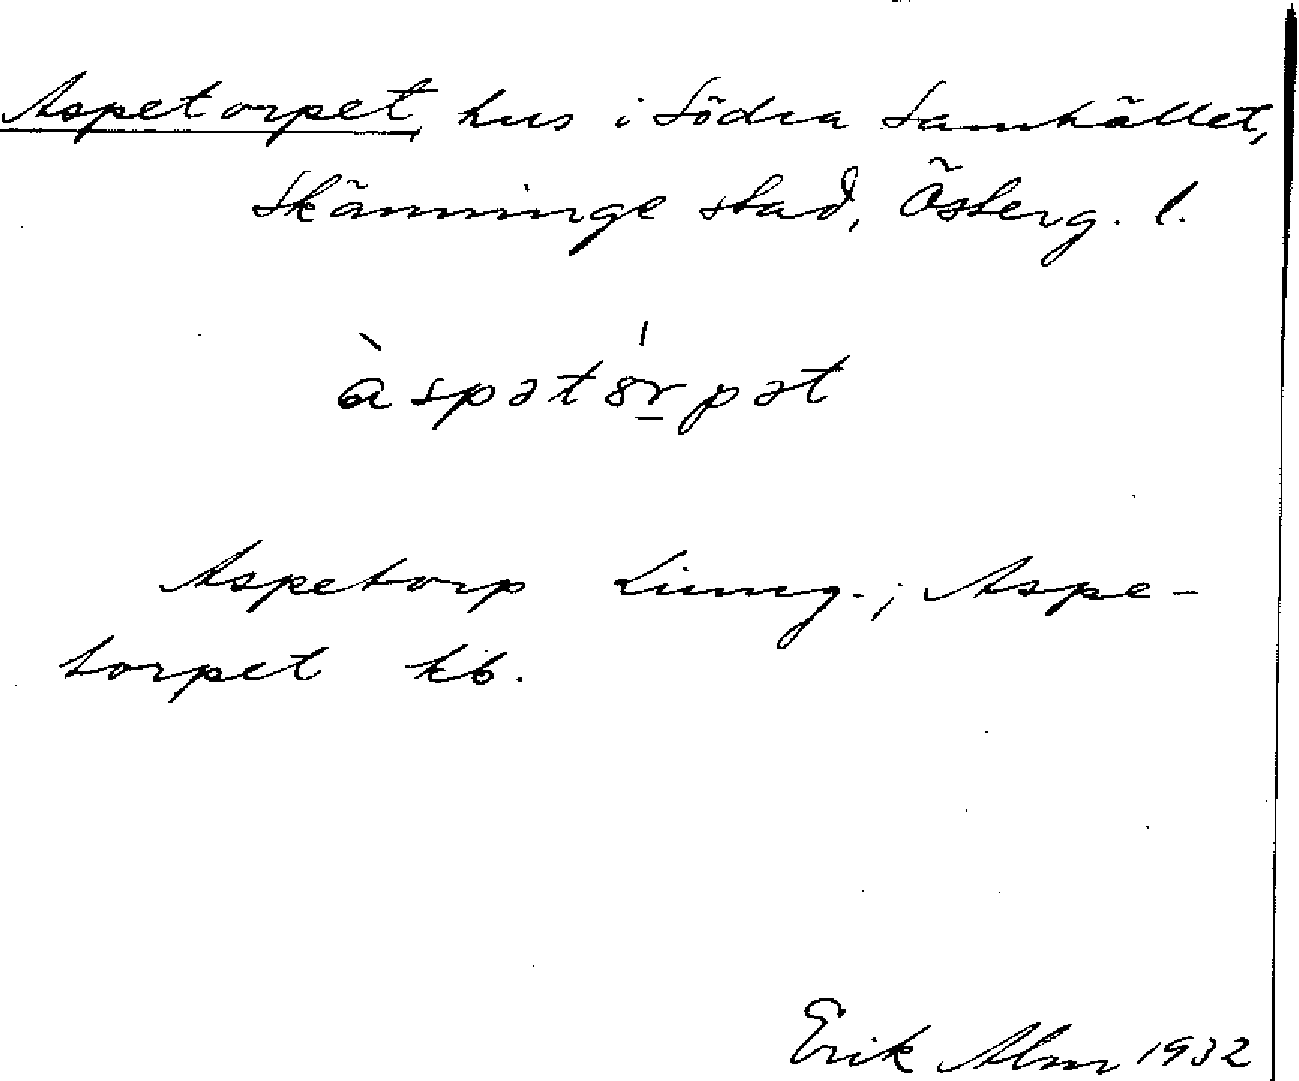 Aspetorpet, hus i Södra Samhället,
Skänninge stad, Österg. l.
àspətórpət
Aspetorp Ljung.; Aspe-
torpet kb.
Erik Alm 1932